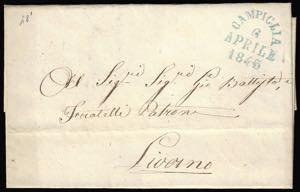 CAMPIGLIA
6
APRILE
1846
Al Sigri Sigri Gio Battista e
Fratelli Patron
Livorno